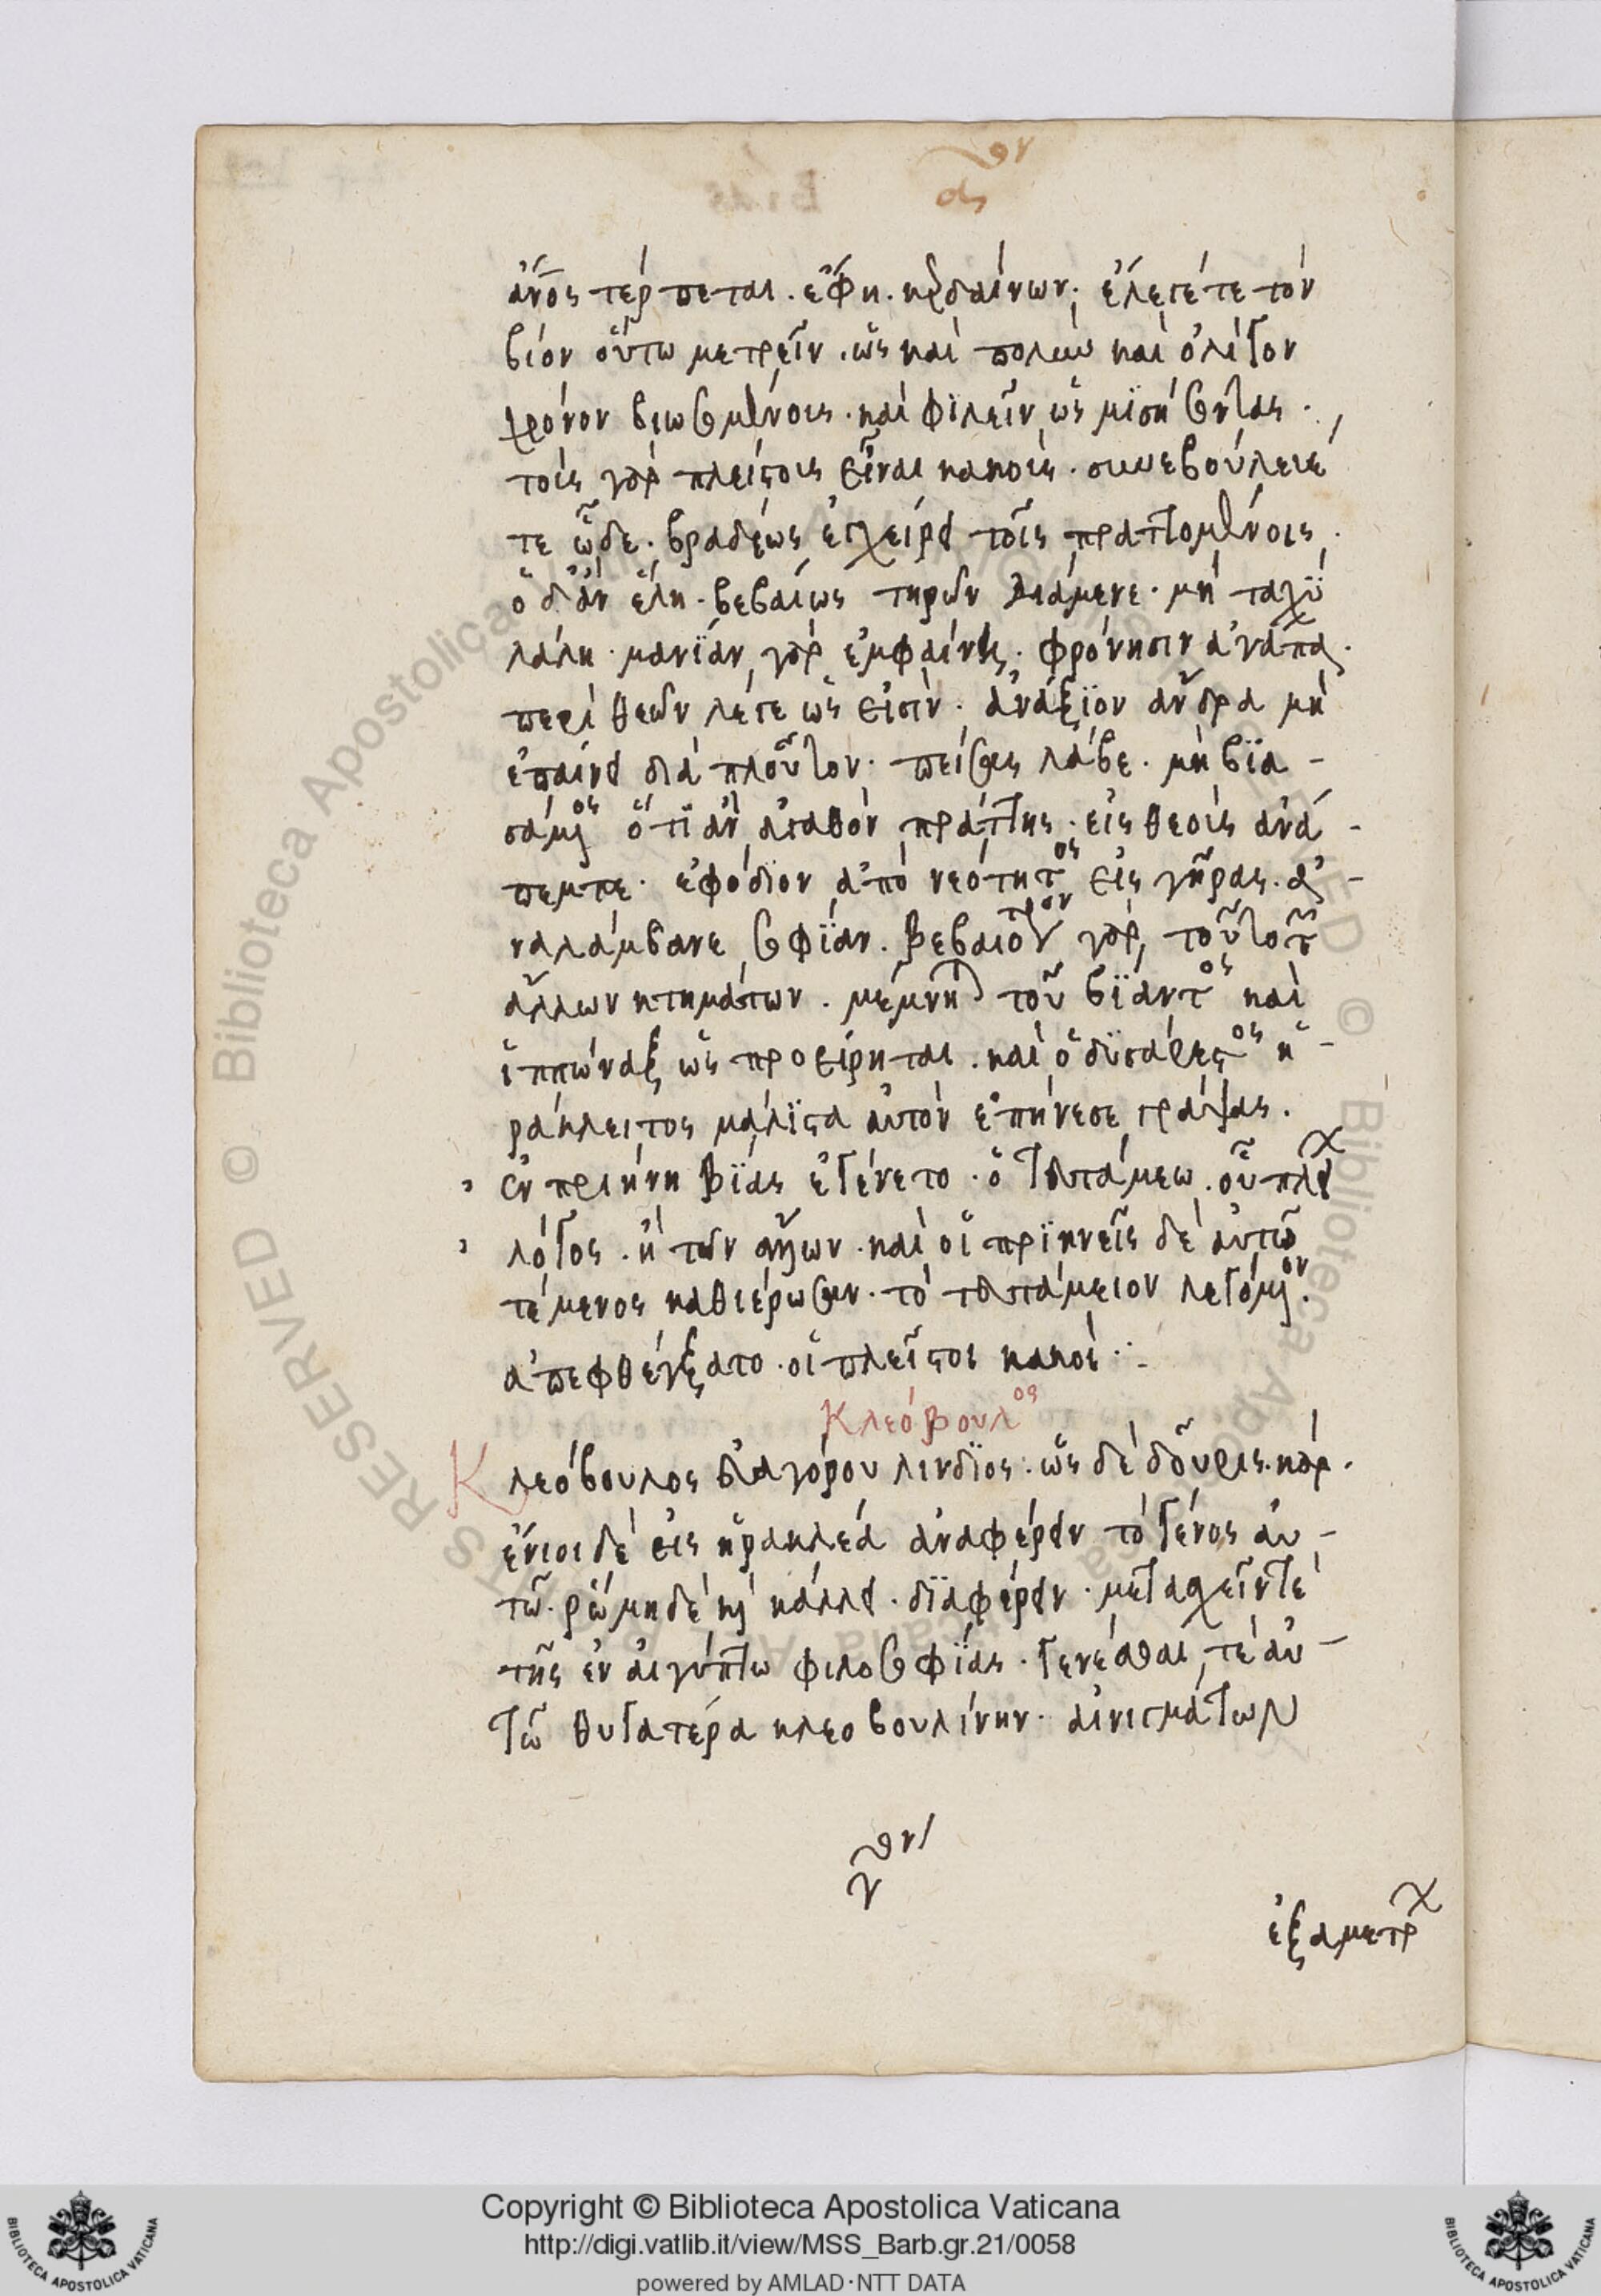 ἄν̅ος τέρπεται. ἔφη. κερδαίνων· ἔλεγέ τε τὸν
βίον οὕτω μετρεῖν. ὡς καὶ πολὺν καὶ ὀλίγον
χρόνον βιωσομένοις. καὶ φϊλεῖν ὡς μϊσήσοντας.
τοὺς γὰρ πλείστους εἶναι κακούς. συνεβούλευέ
τε ὧδε. βραδέως ἐγχείρει τοῖς πραττομένοις.
ὃ δ' ἂν ἕλη. βεβαίως τηρῶν διάμενε. μὴ ταχὺ
λάλη. μανϊάν γὰρ ἐμφαίνει. φρόνησιν ἀγάπα.
περὶ θεῶν λέγε ὡς εἰσὶν. ἀνάξϊον ἄνδρα μὴ
ἐπαίνει διὰ πλοῦτον. πείσας λάβε. μὴ βϊα-
σάμενος ὅ τϊ ἂν ἀγαθὸν πράττης. εἰς θεοὺς ἀνά-
πεμπε. ἐφόδϊον ἀπὸ νεότητος εἰς γῆρας. ἀ-
ναλάμβανε σοφϊαν. βεβαιότερον γὰρ τοῦτο τῶν
ἄλλων κτημάτων. μέμνηται τοῦ βϊαντος καὶ
ἱππώναξ ὡς προείρηται. καὶ ὁ δυσάρεστος ἡ-
ράκλειτος μάλϊστα αὐτὸν ἐπήνεσε γράψας.
ἐν πριήνη βϊας ἐγένετο. ὁ τουτάμεω. οὗ πλείων
λόγος. ἢ τῶν ἄλλων. καὶ οἱ πρϊηνεῖς δὲ αὐτῶ
τέμενος καθιέρωσαν. τὸ τουτάμειον λεγόμενον.
ἀπεφθέγξατο. οἱ πλεῖστοι κακοί.
Κλεόβουλος
Κλεόβουλος εὐαγόρου λίνδϊος. ὡς δὲ δοῦρις. κάρ.
ἔνιοι δὲ εἰς ἡρακλέα ἀναφέρειν τὸ γένος αὐ-
τῶ. ῥώμη δὲ καὶ κάλλει. δϊαφέρειν. μετασχεῖν τὲ
τῆς ἐν αἰγύπτω φιλοσοφϊας. γενέσθαι τὲ αὐ-
τῶ θυγατέρα κλεοβουλίνην. αἰνιγμάτων
ἑξαμέτρων
Copyright © Biblioteca Apostolica Vaticana
http://digi.vatlib.it/view/MSS_Barb.gr.21/0058
powered by AMLAD·NTT DATA